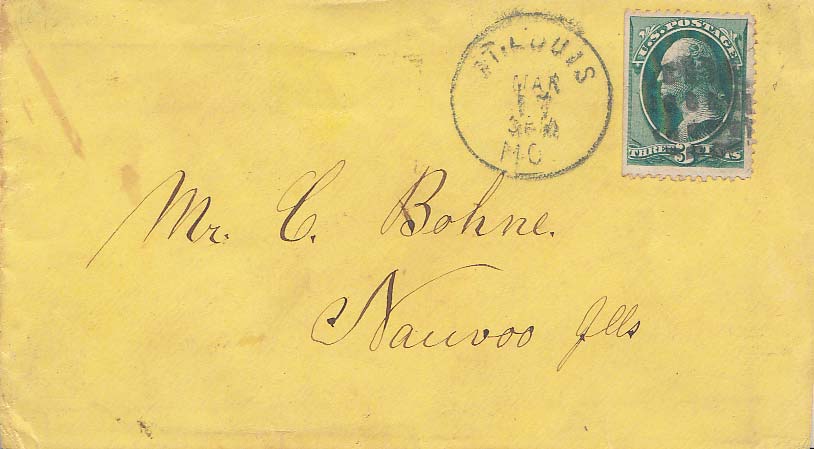 ST. LOUIS
MAR
17
MO.
U.S. POSTAGE
THREE 3 CENTS
Mr. C. Bohne.
Nauvoo Ills